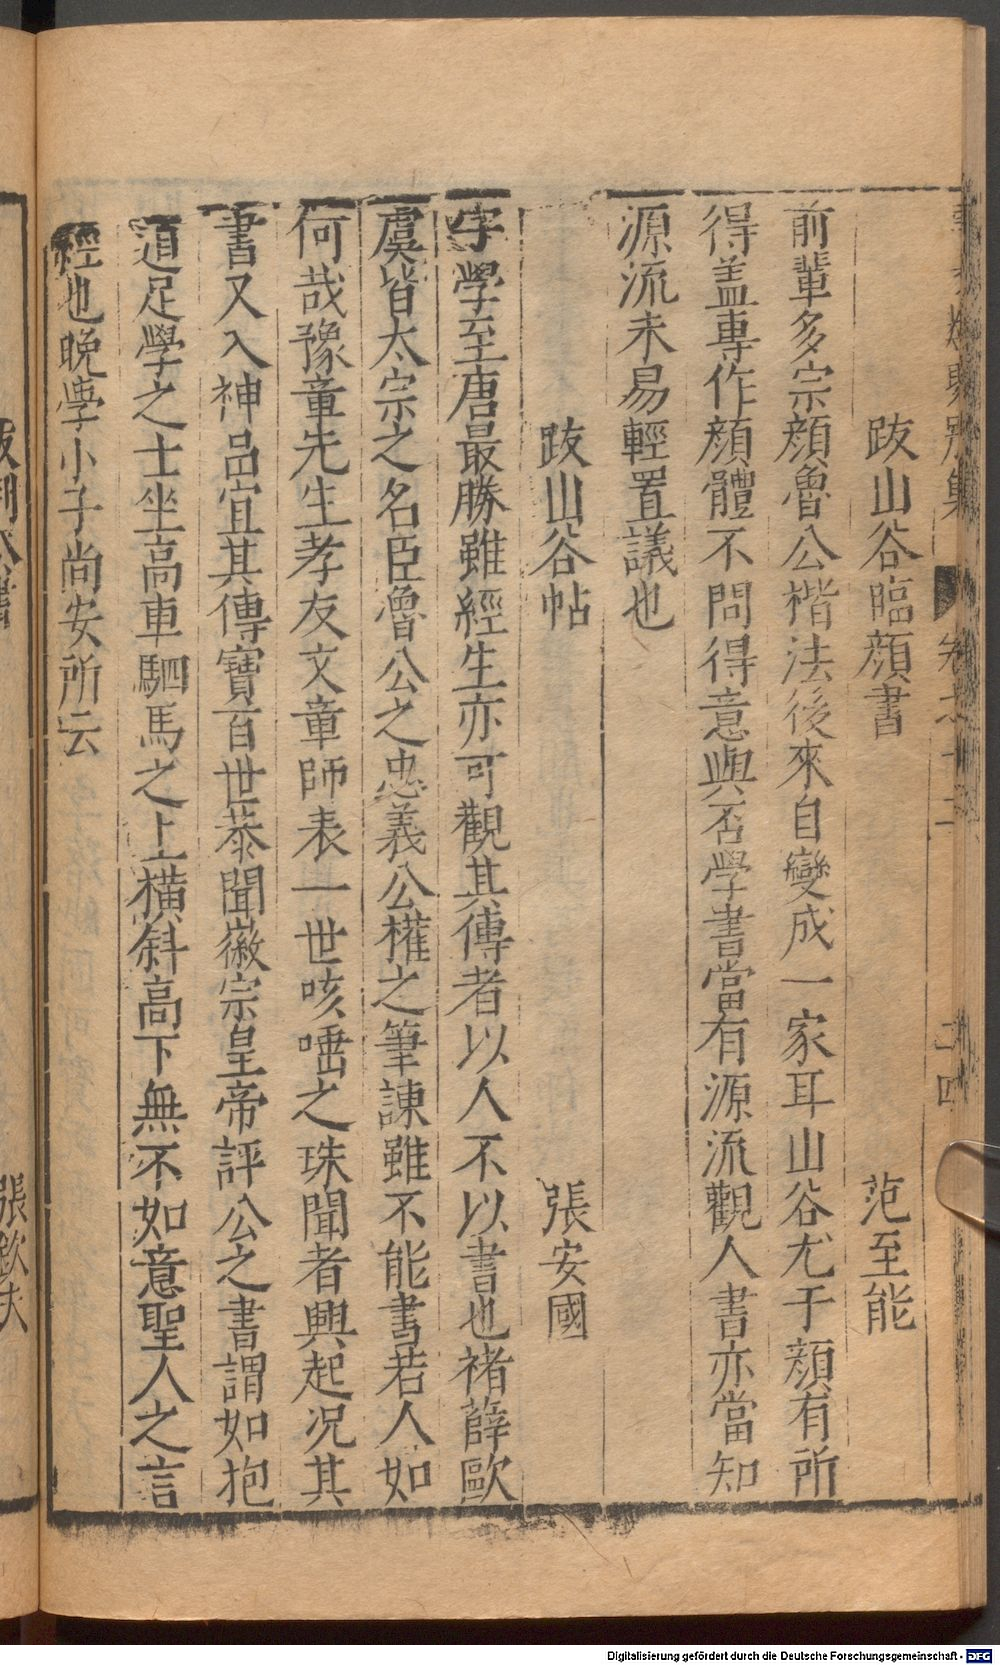 跋山谷臨顏書　范至能
前輩多宗顏魯公楷法後來自變成一家耳山谷尤于顏有所
得盖專作顏體不問得意與否學書當有源流觀人書亦當知
源流未易輕置議也
跋山谷帖　張安國
字學至唐最勝雖經生亦可觀其傳者以人不以書也褚薛歐
虞皆太宗之名臣魯公之忠義公權之筆諫雖不能書若人如
何哉豫章先生孝友文章師表一世咳唾之珠聞者興起况其
書又入神品宜其傳寶百世㳟聞徽宗皇帝評公之書謂如抱
道足學之士坐高車駟馬之上橫斜高下無不如意聖人之言
經也晚學小子尚安所云
張欽夫
Digitalisierung gefördert durch die Deutsche Forschungsgemeinschaft - DFG